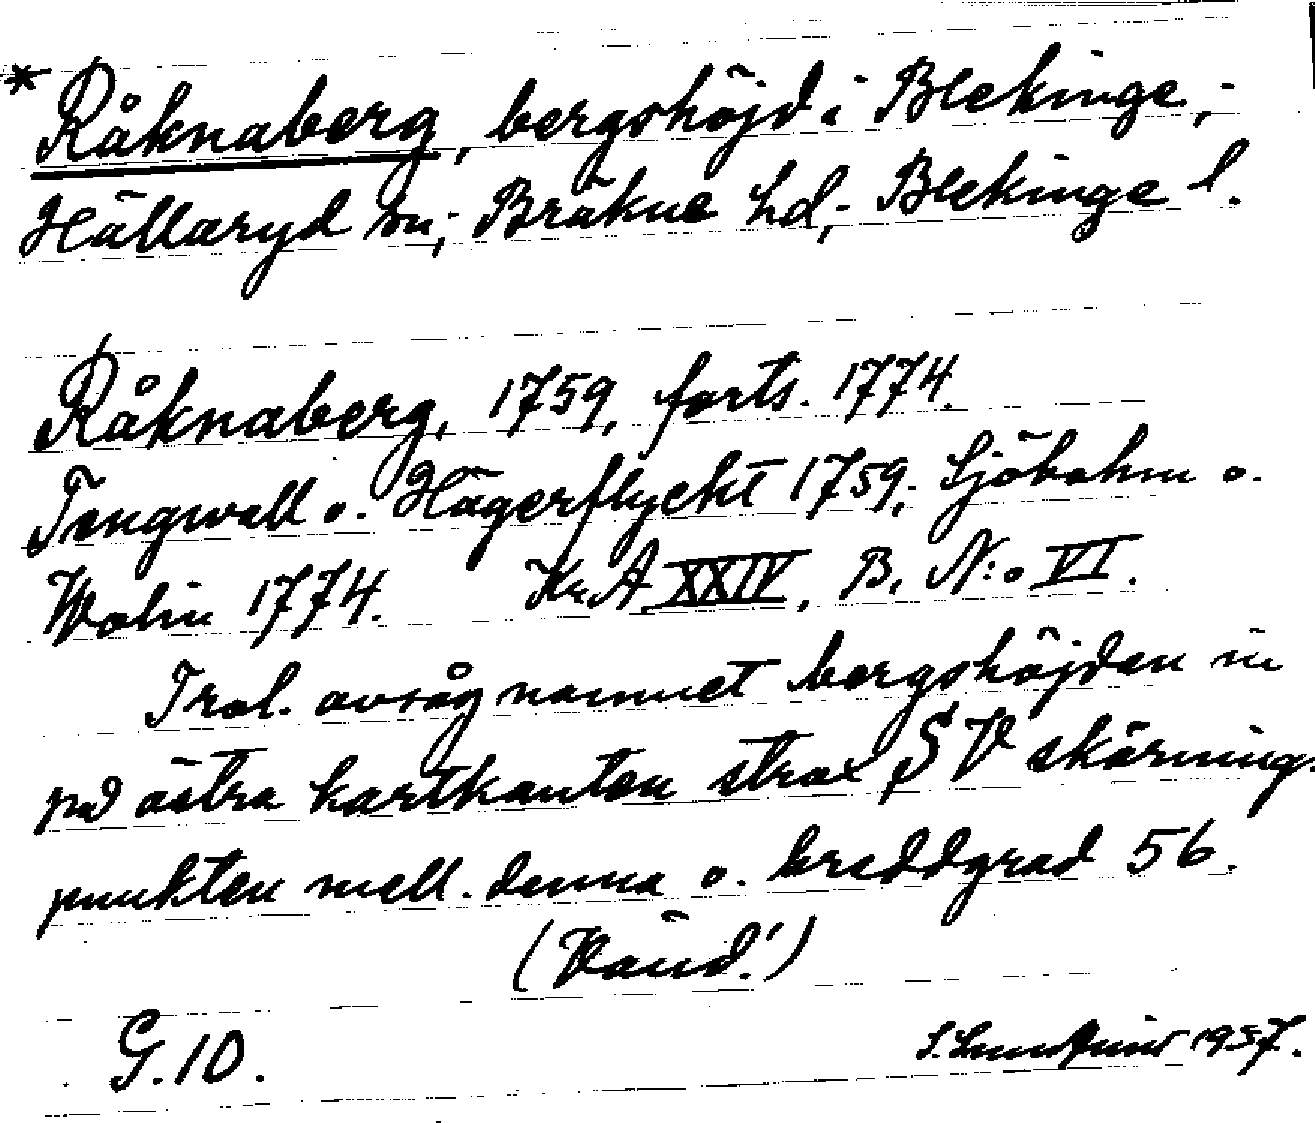 * Råknaberg, bergshöjd i Blekinge,-
Hällaryd sn,- Bräkne hd,- Blekinge l.
Råknaberg, 1759, forts. 1774.
Tengwall o. Hägerflycht 1759,- Sjöbohm o.
Wolin 1774. Kr. A XXIV, B. N:o VI.
Trol. avsåg namnet bergshöjden
på östra kartkanten strax SV skärnings
punkten mell. denna o. breddgrad 56.
(Vänd!)
G. 10. S. 1957.